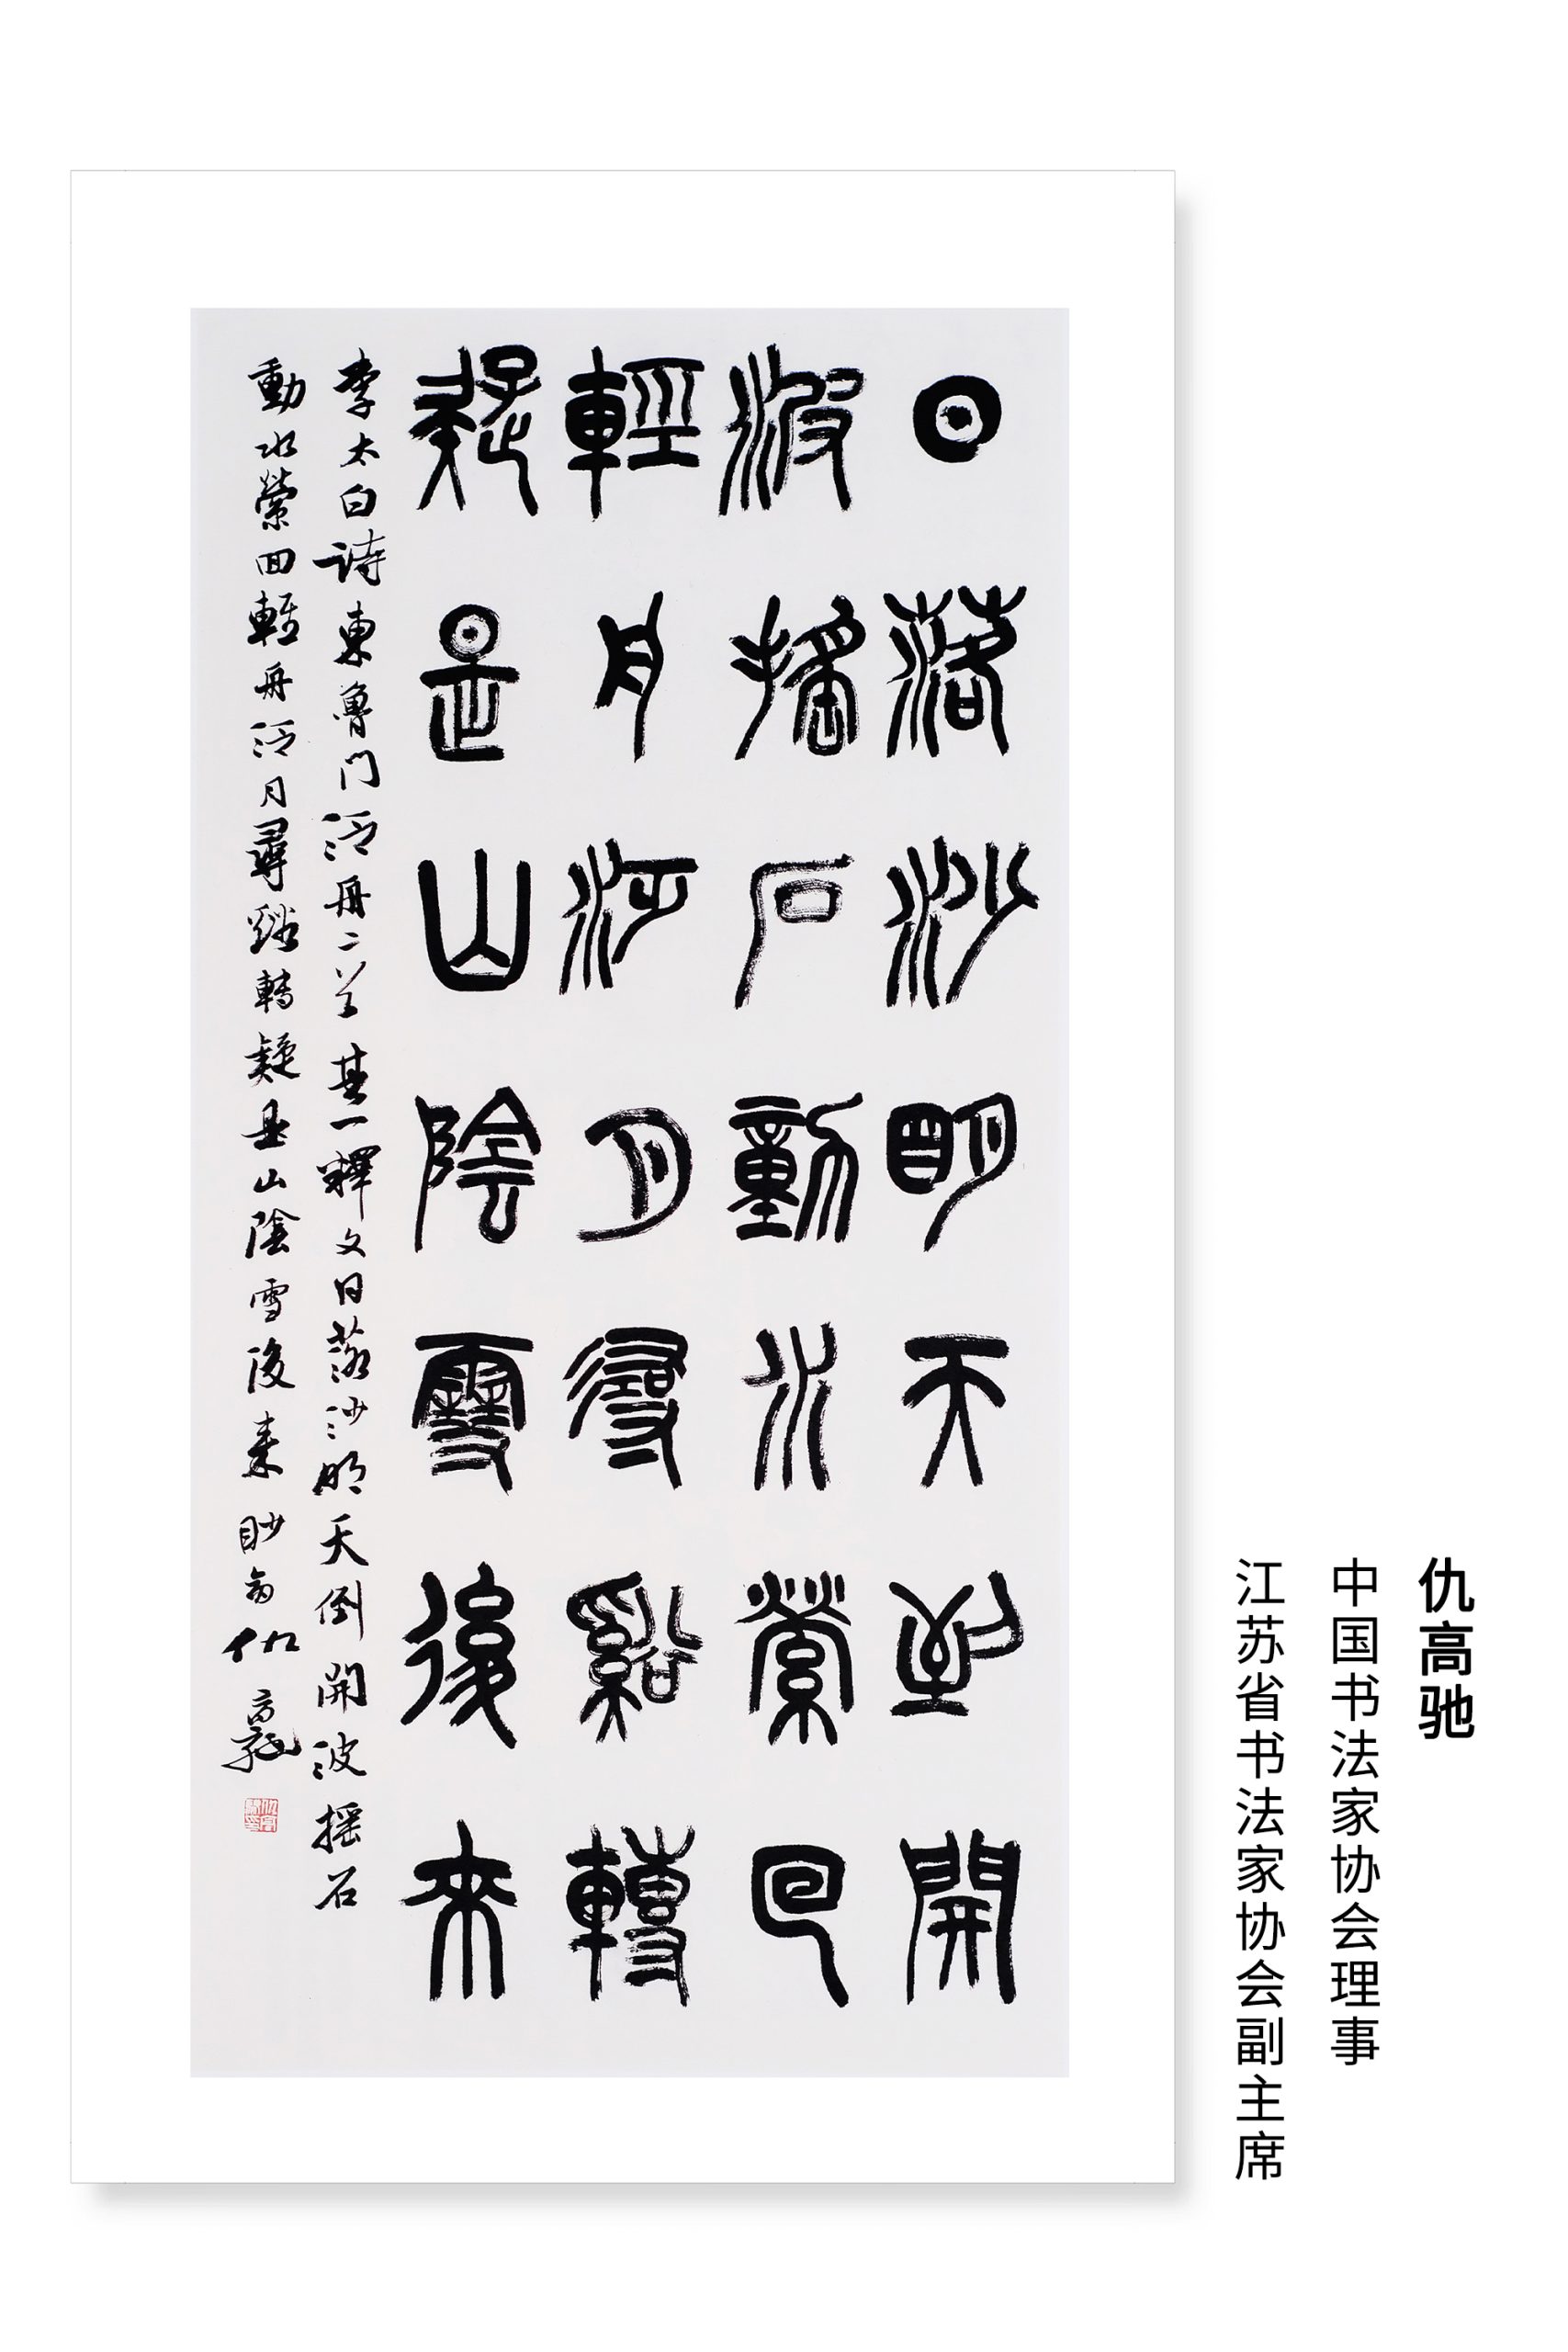 日落沙明天到開
波摇石動水縈回
輕舟泛月尋谿轉
疑是山陰雪後來
李太白詩東魯門泛舟二首其一釋文日落沙明天倒開波摇石
動水縈回輕舟泛月尋谿轉疑是山陰雪後來眇翁仇高馳
仇高驰
中国书法家协会理事
江苏省书法家协会副主席